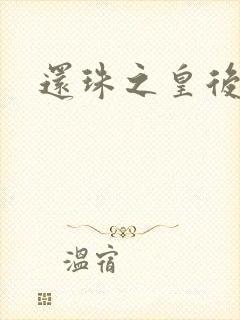 還珠之皇後
溫宿